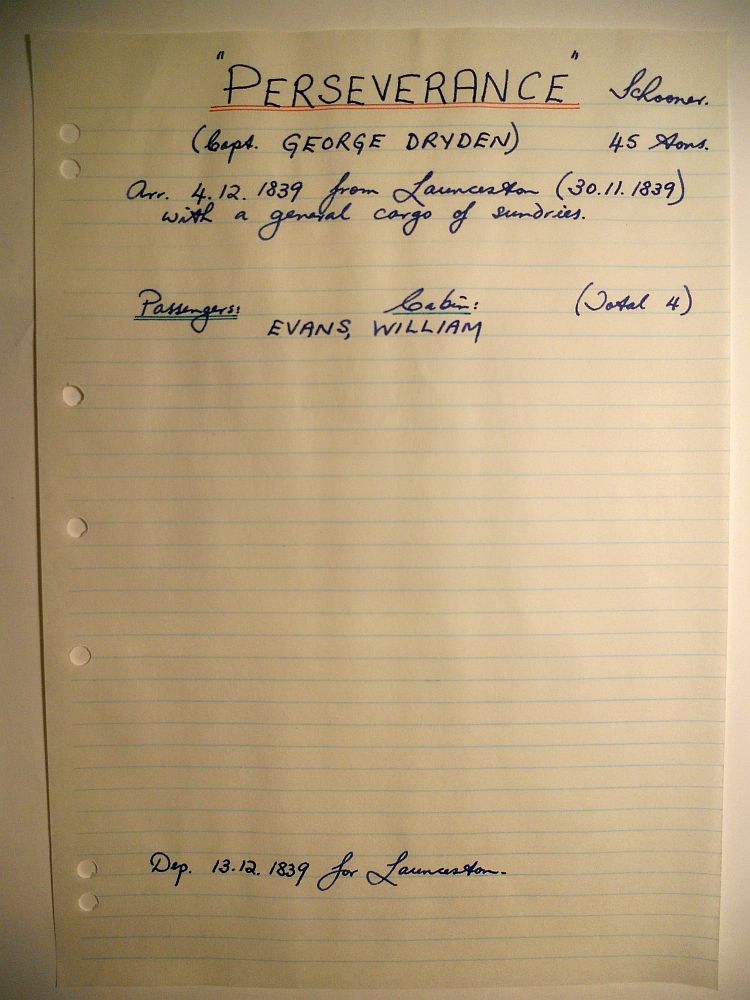 "PERSEVERANCE" Schooner.
(Capt. GEORGE DRYDEN) 45 tons.
Arr. 4.12.1839 from Launceston (30.11.1839)
with a general cargo of sundries.
Passengers: Cabin: (Total 4)
EVANS, WILLIAM
Dep. 13.12.1839 for Launceston.